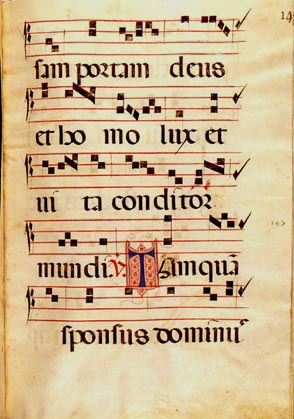 sam portam deus
et ho mo lux et
ui ta conditor
mundi ℣ Tamquā
sponsus dominus